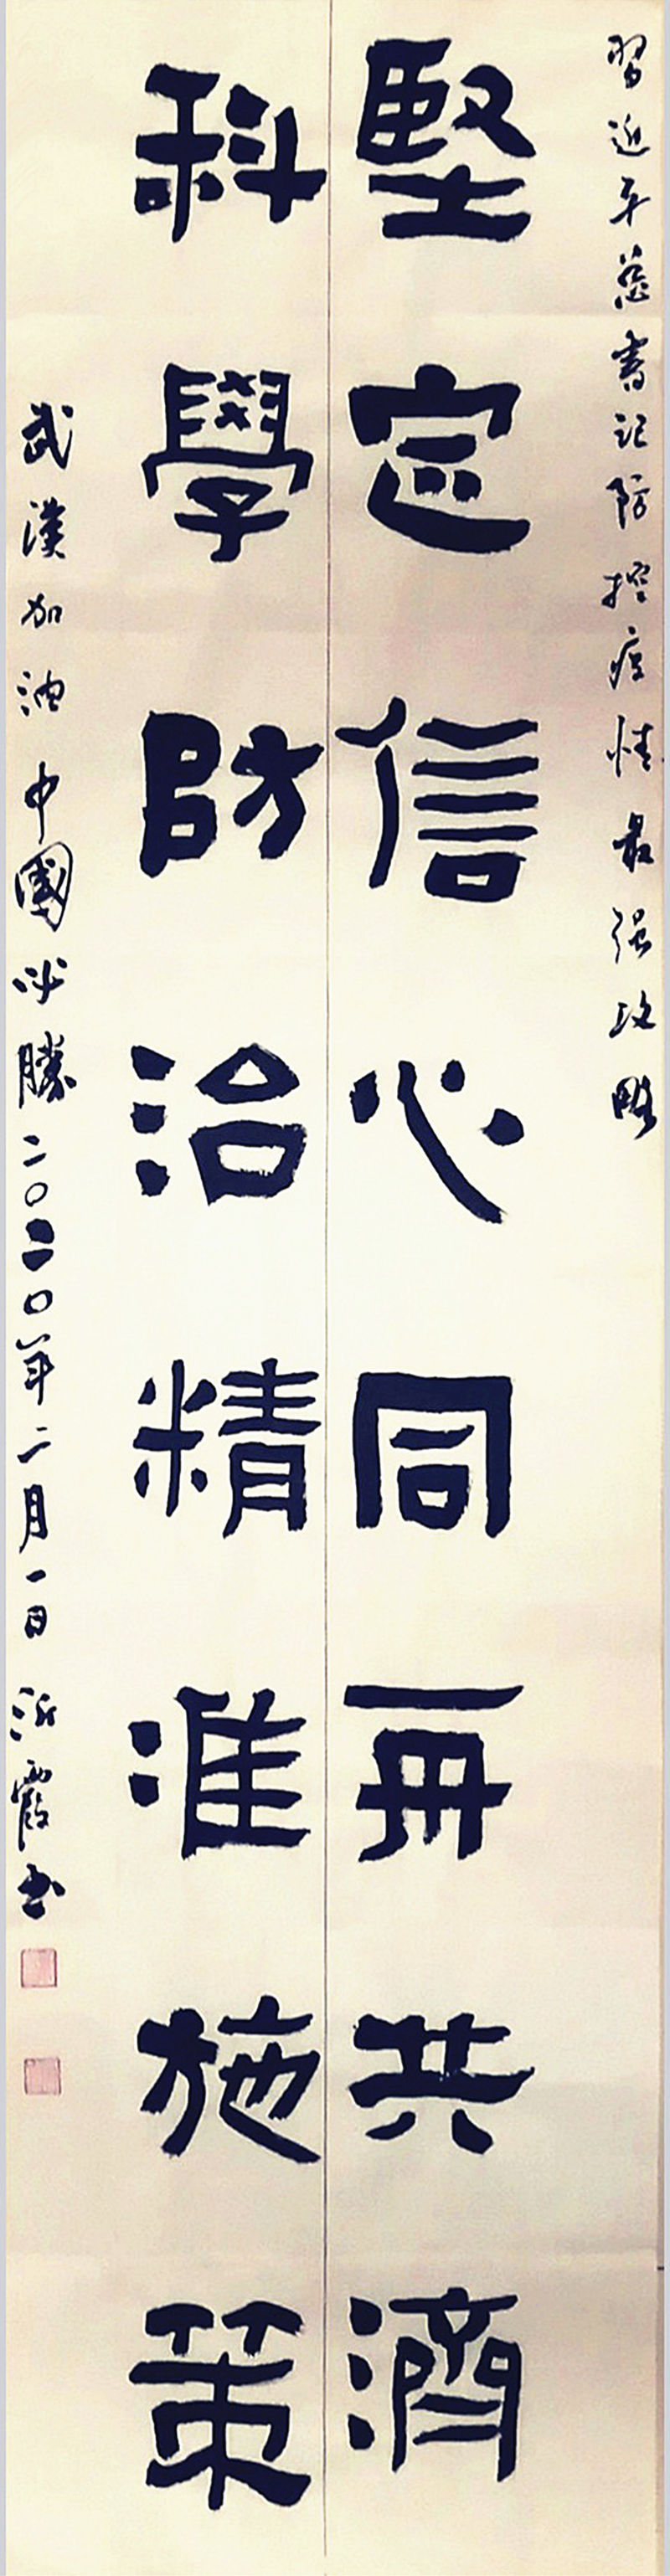 習近平总書记防控疫情最强攻略
堅定信心同再共濟
科學防治精准施策
武漢加油中國必勝二〇二〇年二月一日沂霞书